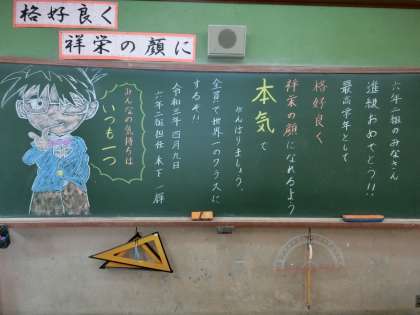 格好良く
祥栄の顔に
六年二組のみなさん
進級おめでとう!!
最高学年として
格好良く
祥栄の顔になれるよう
本気で
がんばりましょう。
全員で世界一のクラスに
するぞ!!
令和三年四月九日
六年二組担任 木下 一群
みんなの気持ちは
いつも一つ